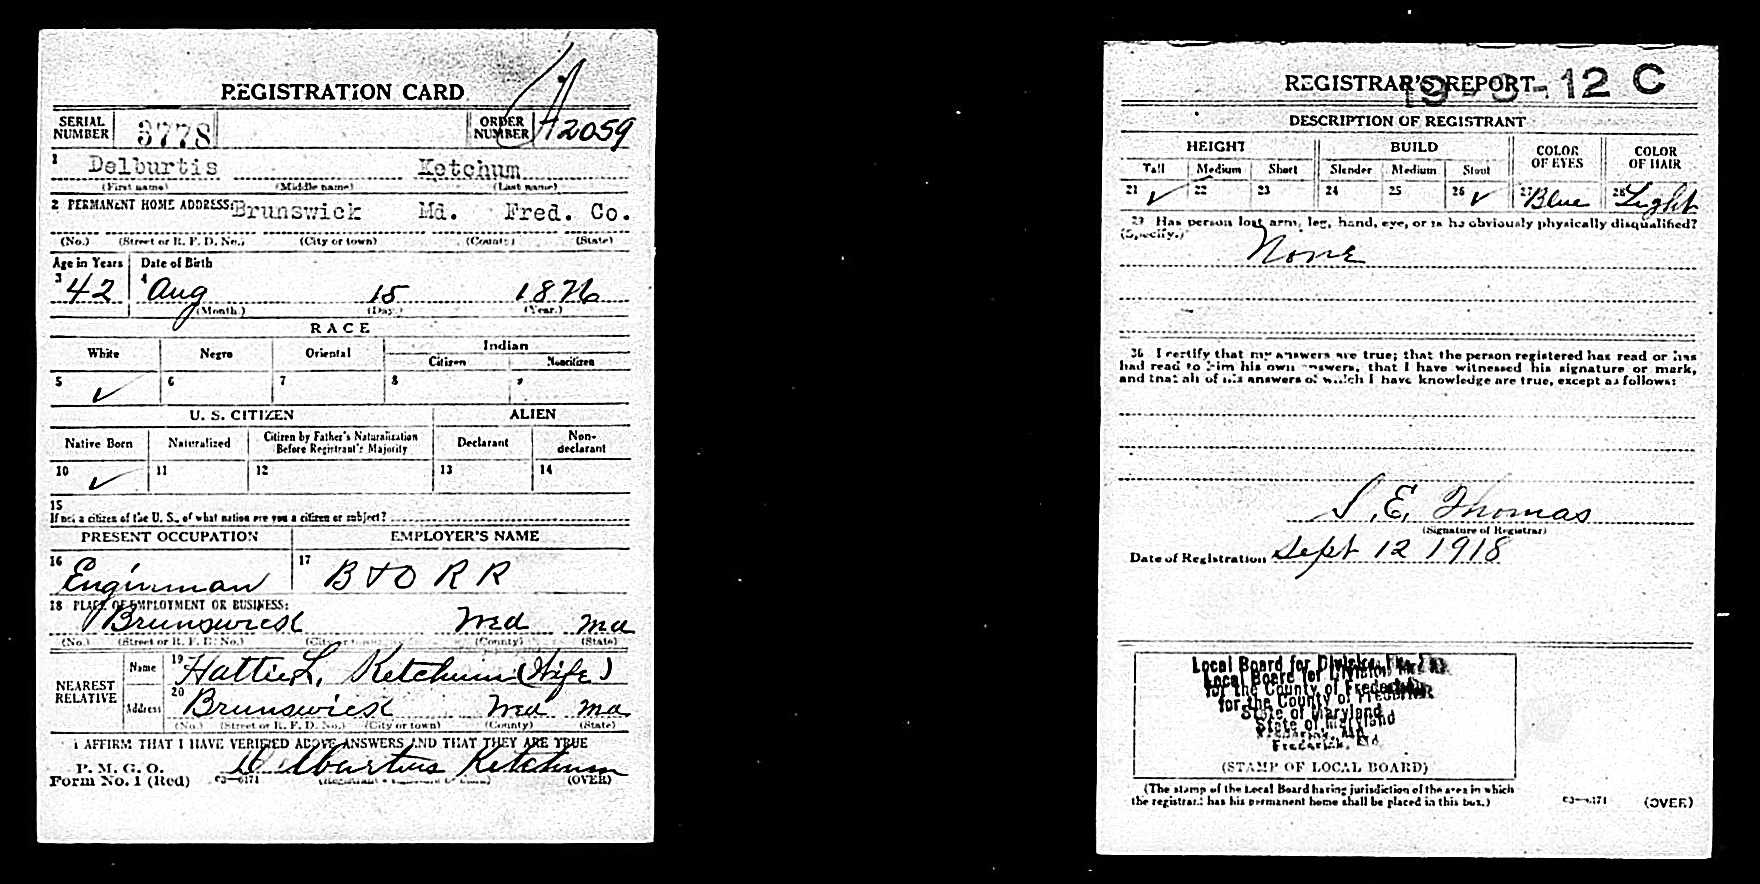 REGISTRATION CARD
SERIAL NUMBER 3778 ORDER NUMBER A2059
1 Delburtis Ketchum
(First name) (Middle name) (Last name)
2 PERMANENT HOME ADDRESS: Brunswick Md. Fred. Co.
(No.) (Street or R. F. D. No.) (City or town) (County) (State)
Age in Years Date of Birth
3 42 4 Aug 15 1876
(Month.) (Day.) (Year.)
RACE
White Negro Oriental Indian
Citizen Noncitizen
5 ✓ 6 7 8 9
U. S. CITIZEN ALIEN
Native Born Naturalized Citizen by Father's Naturalization Before Registrant's Majority Declarant Non-declarant
10 ✓ 11 12 13 14
15
If not a citizen of the U. S., of what nation are you a citizen or subject?
PRESENT OCCUPATION EMPLOYER'S NAME
16 Enginman 17 B & O R R
18 PLACE OF EMPLOYMENT OR BUSINESS:
Brunswick Fred Md
(No.) (Street or R. F. D. No.) (City or town) (County) (State)
NEAREST RELATIVE
Name 19 Hattie L. Ketchum (Wife)
Address 20 Brunswick Fred Md
(No.) (Street or R. F. D. No.) (City or town) (County) (State)
I AFFIRM THAT I HAVE VERIFIED ABOVE ANSWERS AND THAT THEY ARE TRUE
P. M. G. O.
Form No. 1 (Red) 03—6171 Delburtus Ketchum (OVER)
REGISTRAR'S REPORT 12 C
DESCRIPTION OF REGISTRANT
HEIGHT BUILD COLOR OF EYES COLOR OF HAIR
Tall Medium Short Slender Medium Stout
21 ✓ 22 23 24 25 26 ✓ 27 Blue 28 Light
29 Has person lost arm, leg, hand, eye, or is he obviously physically disqualified?
(Specify.) None
30 I certify that my answers are true; that the person registered has read or has
had read to him his own answers, that I have witnessed his signature or mark,
and that all of his answers of which I have knowledge are true, except as follows:
S. E. Thomas
(Signature of Registrar)
Date of Registration Sept 12 1918
Local Board for Division
Local Board for Division
for the County of Frederick
for the County of Frederick
State of Maryland
State of Maryland
Frederick, Md.
(STAMP OF LOCAL BOARD)
(The stamp of the Local Board having jurisdiction of the area in which
the registrant has his permanent home shall be placed in this box.)
03—6171 (OVER)